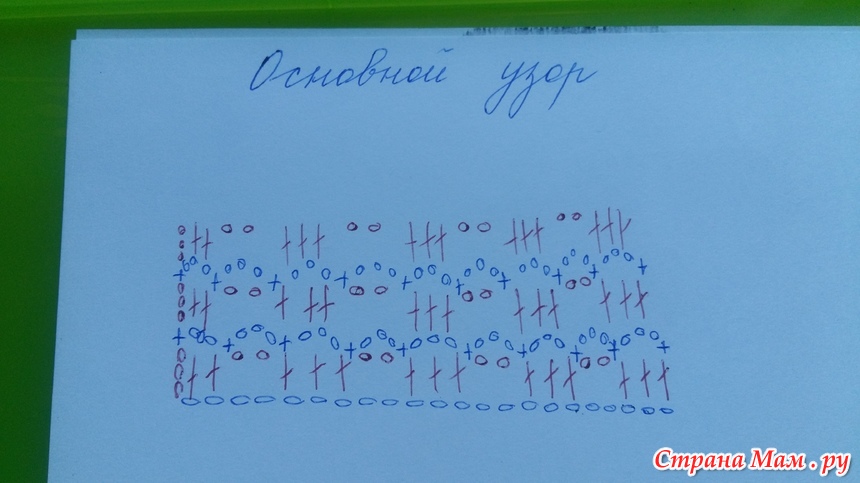 Основной узор
Страна Мам.ру